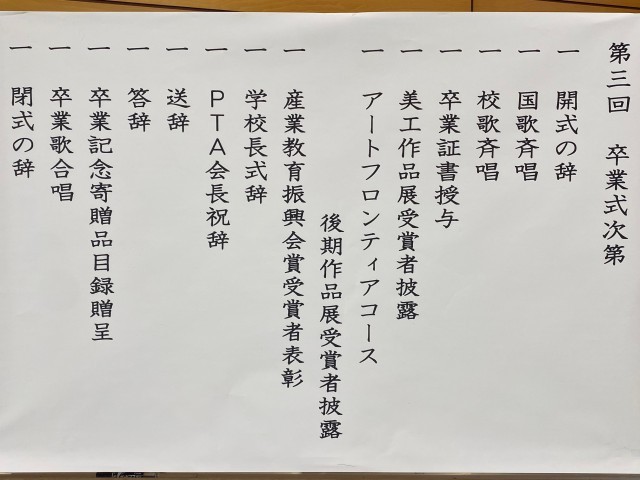 第三回　卒業式次第
一　開式の辞
一　国歌斉唱
一　校歌斉唱
一　卒業証書授与
一　美工作品展受賞者披露
一　アートフロンティアコース
後期作品展受賞者披露
一　産業教育振興会賞受賞者表彰
一　学校長式辞
一　PTA会長祝辞
一　送辞
一　答辞
一　卒業記念寄贈品目録贈呈
一　卒業歌合唱
一　閉式の辞